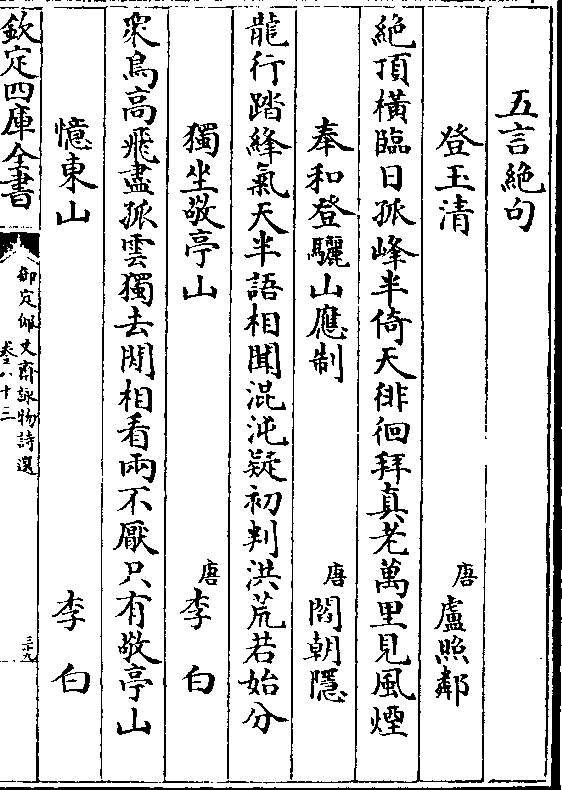 五言絶句
登玉清 唐 盧照鄰
絶頂橫臨日孤峰半倚天徘徊拜真老萬里見風煙
奉和登驪山應制 唐 閻朝隱
龍行踏絳氣天半語相聞混沌疑初判洪荒若始分
獨坐敬亭山 唐 李白
衆鳥高飛盡孤雲獨去閒相看兩不厭只有敬亭山
憶東山 李白
欽定四庫全書
御定佩文齋詠物詩選
卷八十三